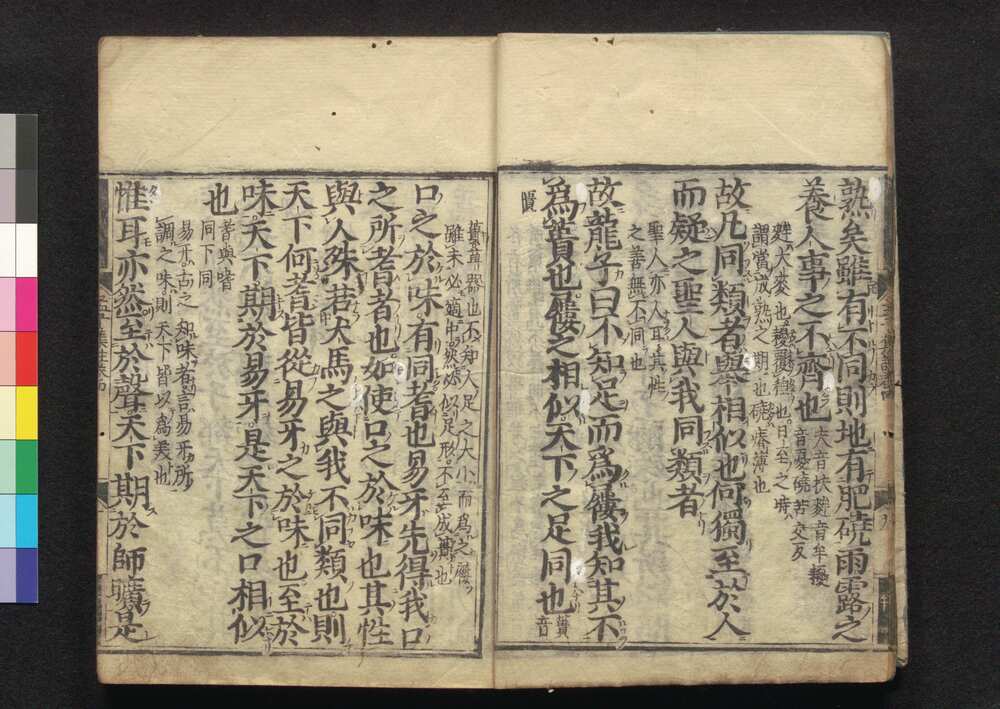 熟矣雖有不同則地有肥磽雨露之
養人事之不齊也 夫音扶麰音牟耰
音憂磽苦交反
麰大麥也耰覆種也日至之時
謂當成熟之期也磽瘠薄也
故凡同類者舉相似也何獨至於人
而疑之聖人與我同類者
聖人亦人耳其性
之善無不同也
故龍子曰不知足而爲屨我知其不
爲蕢也屨之相似天下之足同也 蕢音
匱
蕢草器也不知人足之大小而爲之屨
雖未必適中然必似足形不至成蕢也
口之於味有同耆也易牙先得我口
之所耆者也如使口之於味也其性
與人殊若犬馬之與我不同類也則
天下何耆皆從易牙之於味也至於
味天下期於易牙是天下之口相似
也 耆與嗜
同下同
易牙古之知味者言易牙所
調之味則天下皆以爲美也
惟耳亦然至於聲天下期於師曠是